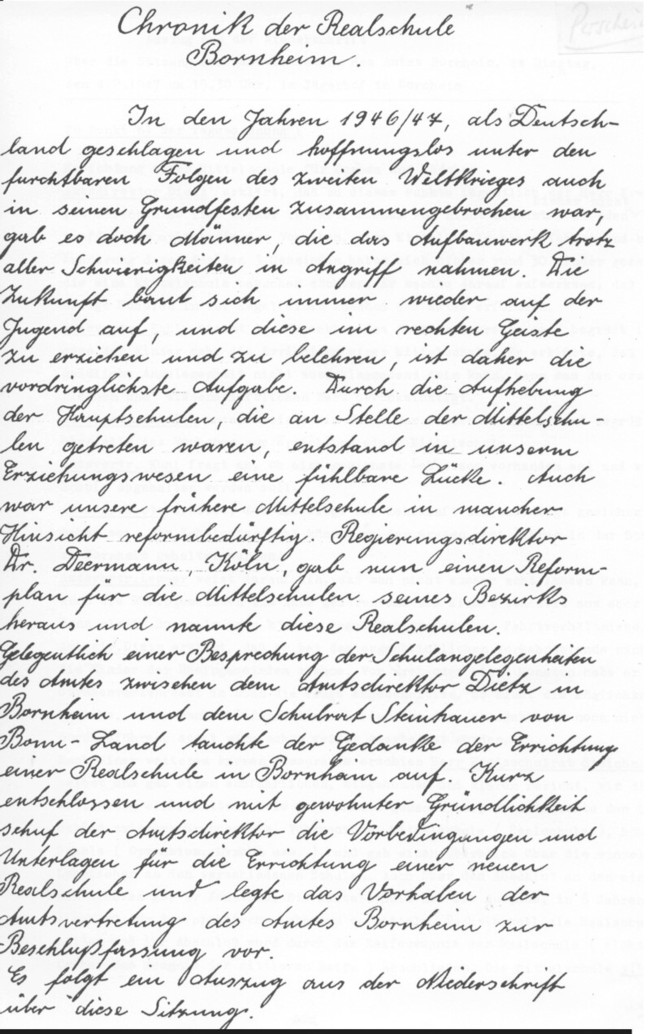 Chronik der Realschule
Bornheim.
In den Jahren 1946/47, als Deutsch-
land geschlagen und hoffnungslos unter den
furchtbaren Folgen des zweiten Weltkrieges auch
in seinen Grundfesten zusammengebrochen war,
gab es doch Männer, die das Aufbauwerk trotz
aller Schwierigkeiten in Angriff nahmen. Die
Zukunft baut sich immer wieder auf der
Jugend auf, und diese im rechten Geiste
zu erziehen und zu belehren, ist daher die
vordringlichste Aufgabe. Durch die Aufhebung
der Hauptschulen, die an Stelle der Mittelschu-
len getreten waren, entstand in unserm
Erziehungswesen eine fühlbare Lücke. Auch
war unsere frühere Mittelschule in mancher
Hinsicht reformbedürftig. Regierungsdirektor
Dr. Deermann, Köln, gab nun einen Reform-
plan für die Mittelschulen seines Bezirks
heraus und nannte diese Realschulen.
Gelegentlich einer Besprechung der Schulangelegenheiten
des Amtes zwischen dem Amtsdirektor Dietz in
Bornheim und dem Schulrat Steinhauer von
Bonn-Land tauchte der Gedanke der Errichtung
einer Realschule in Bornheim auf. Kurz
entschlossen und mit gewohnter Gründlichkeit
schuf der Amtsdirektor die Vorbedingungen und
Unterlagen für die Errichtung einer neuen
Realschule und legte das Vorhaben der
Amtsvertretung des Amtes Bornheim zur
Beschlußfassung vor.
Es folgt ein Auszug aus der Niederschrift
über diese Sitzung.